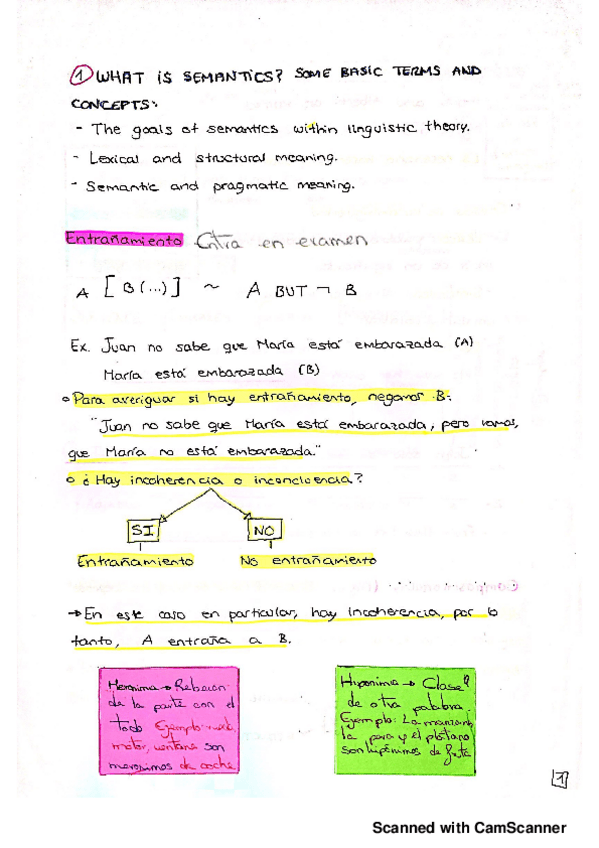 1 WHAT IS SEMANTICS? SOME BASIC TERMS AND
CONCEPTS:
- The goals of semantics within linguistic theory.
- Lexical and structural meaning.
- Semantic and pragmatic meaning.
Entrañamiento Entra en examen
A [B(...)] ~ A BUT ¬ B
Ex. Juan no sabe que María está embarazada (A)
María está embarazada (B)
Para averiguar si hay entrañamiento, negamos B:
"Juan no sabe que María está embarazada, pero vamos,
que María no está embarazada."
¿Hay incoherencia o?
SI NO
Entrañamiento No entrañamiento
→ En este caso en particular, hay incoherencia, por lo
tanto, A entraña a B.
Meronimia → Relación
de la parte con el
todo Ejemplo:
motor, ventana son
meronimos de coche
Hiponimia → Clase
de otra palabra.
Ejemplo: La manzana,
la pera y el plátano
son hipónimos de fruta
1
Scanned with CamScanner